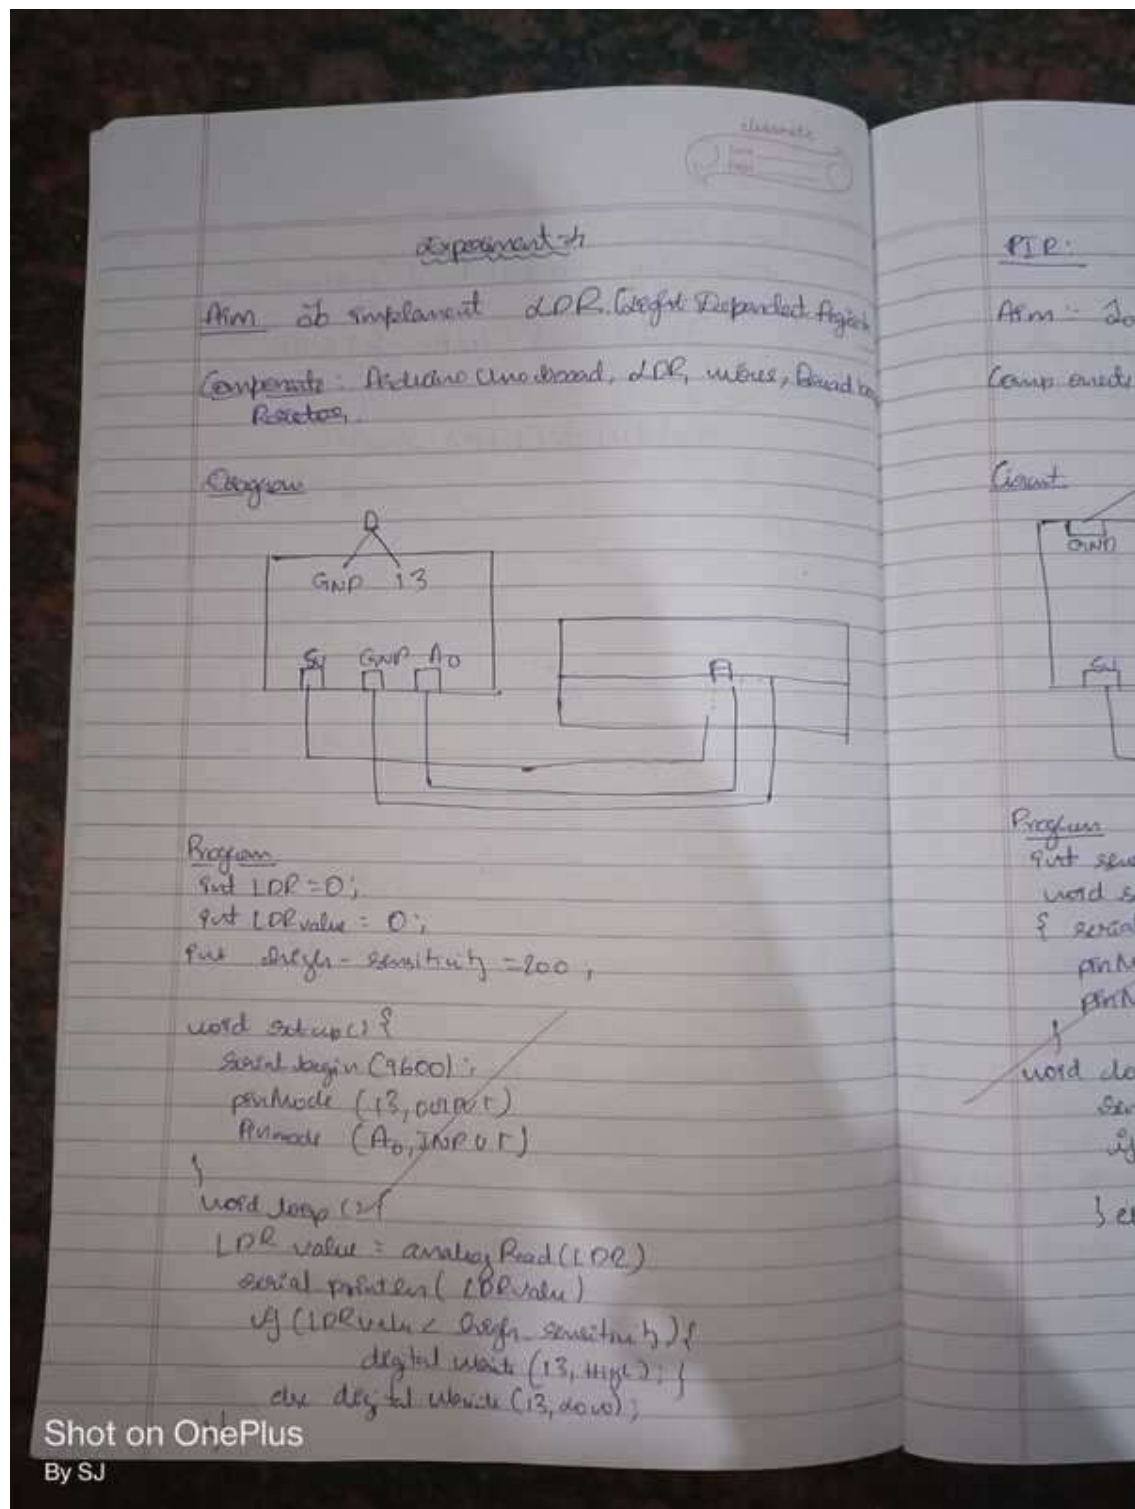 classmate
Experiment-4
Aim To implement LDR (Light Dependent
Components: Arduino Uno board, LDR, wires, Bread bo
Resistor,
Diagram
GND 13
5v GND A0
Program
int LDR = 0;
int LDRvalue = 0;
int high-sensitivity = 200;
void setup() {
Serial begin (9600);
pinMode (13, OUTPUT)
Pinmode (A0, INPUT)
}
void loop () {
LDR value = analog Read (LDR)
serial println ( LDRvalue)
if (LDRvalue < high sensitivity) {
digital write (13, High); }
else digital write (13, Low);
PIR:
Aim:- To
Components
Circuit
GND
5v
Program
int sen
void s
{ serial
pinM
pinM
}
void lo
Ser
if
} el
Shot on OnePlus
By SJ